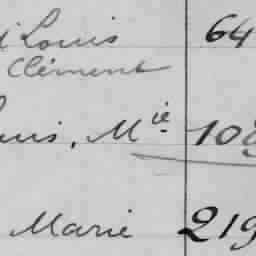 Louis 64
Clément
Mie 10
Marie 219